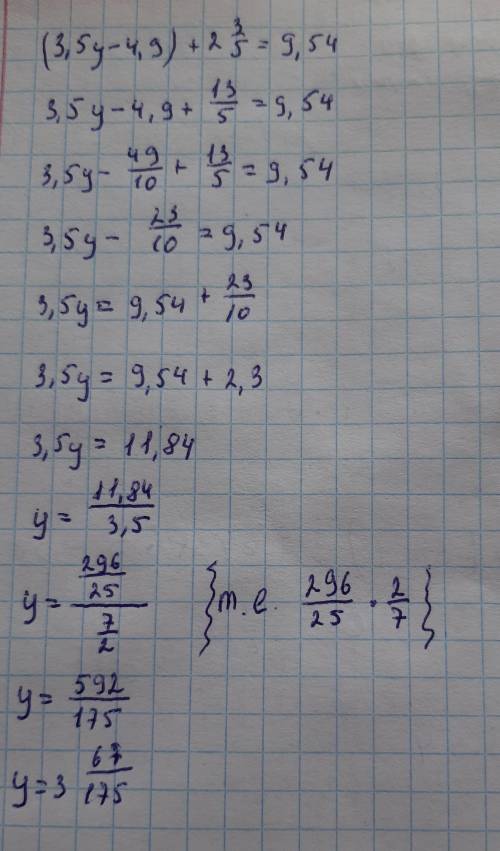 (3,5y-4,9)+2 3/5=9,54
3,5y-4,9+13/5=9,54
3,5y-49/10+13/5=9,54
3,5y-23/10=9,54
3,5y=9,54+23/10
3,5y=9,54+2,3
3,5y=11,84
y=11,84/3,5
y=(296/25)/(7/2) {т.е. 296/25·2/7}
y=592/175
y=3 67/175